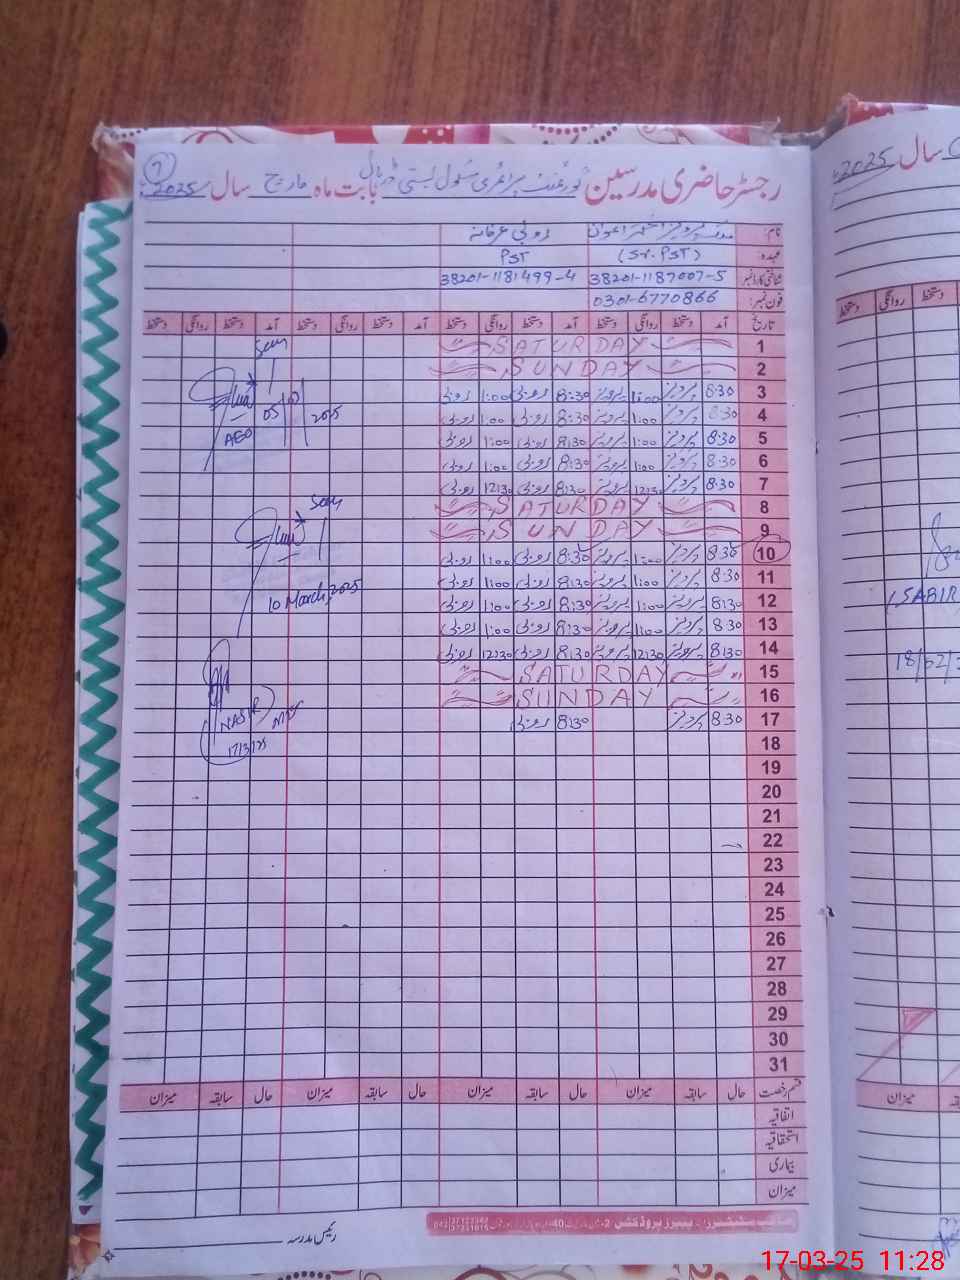 رجسٹر حاضری مدرسین گورنمنٹ پرائمری سکول بستی بابت ماہ مارچ سال 2025
نام: پرویز اختر اعوان روبی عرفانہ
عہدہ: (Sr. PST) PST
شناختی کارڈ نمبر 38201-1187007-5 38201-1181499-4
فون نمبر: 0301-6770866
تاریخ آمد دستخط روانگی دستخط آمد دستخط روانگی دستخط آمد دستخط روانگی دستخط آمد دستخط روانگی دستخط
1 SATURDAY
2 SUNDAY
3 8:30 پرویز 1:00 پرویز 8:30 روبی 1:00 روبی
4 8:30 پرویز 1:00 پرویز 8:30 روبی 1:00 روبی
5 8:30 پرویز 1:00 پرویز 8:30 روبی 1:00 روبی
6 8:30 پرویز 1:00 پرویز 8:30 روبی 1:00 روبی
7 8:30 پرویز 12:30 پرویز 8:30 روبی 12:30 روبی
8 SATURDAY
9 SUNDAY
10 8:30 پرویز 1:00 پرویز 8:30 روبی 1:00 روبی
11 8:30 پرویز 1:00 پرویز 8:30 روبی 1:00 روبی
12 8:30 پرویز 1:00 پرویز 8:30 روبی 1:00 روبی
13 8:30 پرویز 1:00 پرویز 8:30 روبی 1:00 روبی
14 8:30 پرویز 12:30 پرویز 8:30 روبی 12:30 روبی
15 SATURDAY
16 SUNDAY
17 8:30 پرویز 8:30 روبی
18
19
20
21
22
23
24
25
26
27
28
29
30
31
Seen
AEO
05/03/2025
Seen
10 March, 2025
(NASIR)
17/3/25
قسم رخصت حال سابقہ میزان حال سابقہ میزان حال سابقہ میزان حال سابقہ میزان
اتفاقیہ
استحقاقیہ
بیماری
میزان
رئیس مدرسہ
سال 2025
دستخط روانگی دستخط
(SABIR
18/02/
میزان
17-03-25 11:28